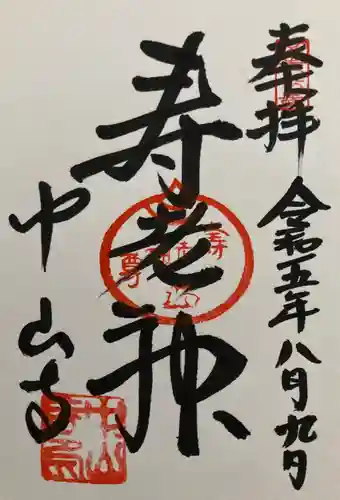 奉拝
令和五年八月九日
寿老神
中山寺